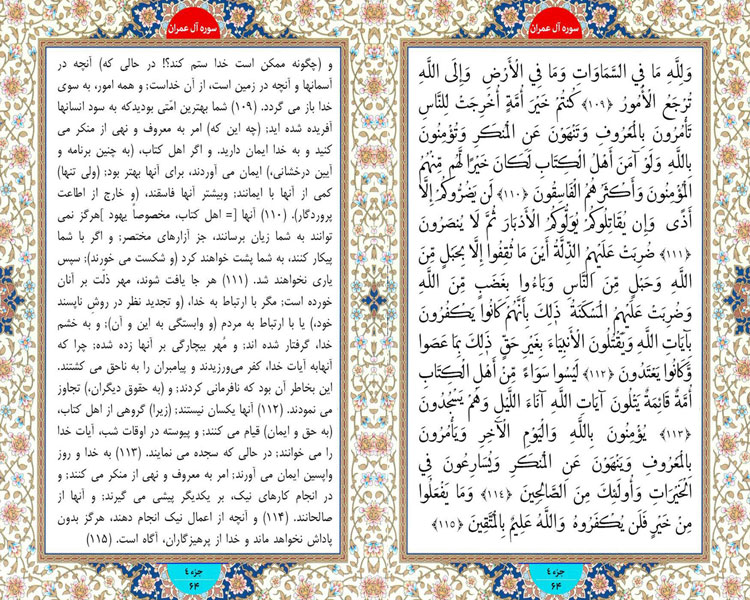 سوره آل عمران
وَلِلَّهِ مَا فِي السَّمَاوَاتِ وَمَا فِي الْأَرْضِ وَإِلَى اللَّهِ
تُرْجَعُ الْأُمُورُ ﴿۱۰۹﴾ كُنْتُمْ خَيْرَ أُمَّةٍ أُخْرِجَتْ لِلنَّاسِ
تَأْمُرُونَ بِالْمَعْرُوفِ وَتَنْهَوْنَ عَنِ الْمُنْكَرِ وَتُؤْمِنُونَ
بِاللَّهِ وَلَوْ آمَنَ أَهْلُ الْكِتَابِ لَكَانَ خَيْرًا لَهُمْ مِنْهُمُ
الْمُؤْمِنُونَ وَأَكْثَرُهُمُ الْفَاسِقُونَ ﴿۱۱۰﴾ لَنْ يَضُرُّوكُمْ إِلَّا
أَذًى وَإِنْ يُقَاتِلُوكُمْ يُوَلُّوكُمُ الْأَدْبَارَ ثُمَّ لَا يُنْصَرُونَ
﴿۱۱۱﴾ ضُرِبَتْ عَلَيْهِمُ الذِّلَّةُ أَيْنَ مَا ثُقِفُوا إِلَّا بِحَبْلٍ مِنَ
اللَّهِ وَحَبْلٍ مِنَ النَّاسِ وَبَاءُوا بِغَضَبٍ مِنَ اللَّهِ
وَضُرِبَتْ عَلَيْهِمُ الْمَسْكَنَةُ ذَلِكَ بِأَنَّهُمْ كَانُوا يَكْفُرُونَ
بِآيَاتِ اللَّهِ وَيَقْتُلُونَ الْأَنْبِيَاءَ بِغَيْرِ حَقٍّ ذَلِكَ بِمَا عَصَوْا
وَكَانُوا يَعْتَدُونَ ﴿۱۱۲﴾ لَيْسُوا سَوَاءً مِنْ أَهْلِ الْكِتَابِ
أُمَّةٌ قَائِمَةٌ يَتْلُونَ آيَاتِ اللَّهِ آنَاءَ اللَّيْلِ وَهُمْ يَسْجُدُونَ
﴿۱۱۳﴾ يُؤْمِنُونَ بِاللَّهِ وَالْيَوْمِ الْآخِرِ وَيَأْمُرُونَ
بِالْمَعْرُوفِ وَيَنْهَوْنَ عَنِ الْمُنْكَرِ وَيُسَارِعُونَ فِي
الْخَيْرَاتِ وَأُولَئِكَ مِنَ الصَّالِحِينَ ﴿۱۱۴﴾ وَمَا يَفْعَلُوا
مِنْ خَيْرٍ فَلَنْ يُكْفَرُوهُ وَاللَّهُ عَلِيمٌ بِالْمُتَّقِينَ ﴿۱۱۵﴾
جزء ٤
۶۴
سوره آل عمران
و (چگونه ممکن است خدا ستم کند؟! در حالی که) آنچه در
آسمانها و آنچه در زمین است، از آن خداست؛ و همه امور، به سوی
خدا باز می گردد. (۱۰۹) شما بهترین امّتی بودیدکه به سود انسانها
آفریده شده اید؛ (چه این که) امر به معروف و نهی از منکر می
کنید و به خدا ایمان دارید. و اگر اهل کتاب، (به چنین برنامه و
آیین درخشانی،) ایمان می آوردند، برای آنها بهتر بود؛ (ولی تنها)
کمی از آنها با ایمانند؛ وبیشتر آنها فاسقند، (و خارج از اطاعت
پروردگار). (۱۱۰) آنها [= اهل کتاب، مخصوصاً یهود ]هرگز نمی
توانند به شما زیان برسانند، جز آزارهای مختصر؛ و اگر با شما
پیکار کنند، به شما پشت خواهند کرد (و شکست می خورند)؛ سپس
یاری نخواهند شد. (۱۱۱) هر جا یافت شوند، مهر ذلّت بر آنان
خورده است؛ مگر با ارتباط به خدا، (و تجدید نظر در روش ناپسند
خود،) یا با ارتباط به مردم (و وابستگی به این و آن)؛ و به خشم
خدا، گرفتار شده اند؛ و مُهر بیچارگی بر آنها زده شده؛ چرا که
آنهابه آیات خدا، کفر می‌ورزیدند و پیامبران را به ناحق می کشتند.
این بخاطر آن بود که نافرمانی کردند؛ و (به حقوق دیگران،) تجاوز
می نمودند. (۱۱۲) آنها یکسان نیستند؛ (زیرا) گروهی از اهل کتاب،
(به حق و ایمان) قیام می کنند؛ و پیوسته در اوقات شب، آیات خدا
را می خوانند؛ در حالی که سجده می نمایند. (۱۱۳) به خدا و روز
واپسین ایمان می آورند؛ امر به معروف و نهی از منکر می کنند؛ و
در انجام کارهای نیک، بر یکدیگر پیشی می گیرند؛ و آنها از
صالحانند. (۱۱۴) و آنچه از اعمال نیک انجام دهند، هرگز بدون
پاداش نخواهد ماند و خدا از پرهیزگاران، آگاه است. (۱۱۵)
جزء ٤
۶۴